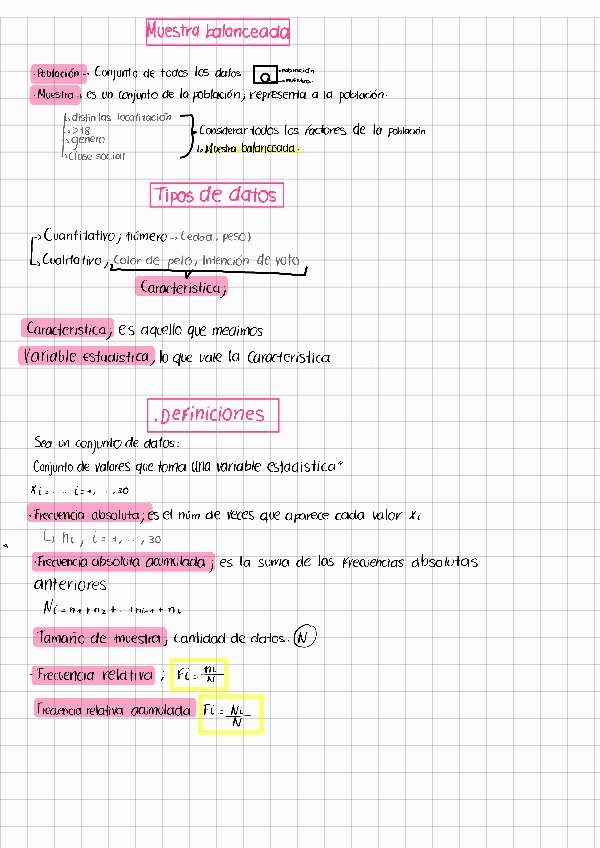 Muestra balanceada
· Población → Conjunto de todos los datos
población
muestra
· Muestra → es un conjunto de la población, representa a la población.
↳ distintas localización
↳ >18
↳ género
↳ clase social
→ Considerar todos los factores de la población
↳ Muestra balanceada.
Tipos de datos
→ Cuantitativo; número → (edad, peso)
↳ Cualitativo, Color de pelo, Intención de voto
Característica;
Característica; es aquello que medimos
Variable estadística, lo que vale la Característica
. Definiciones
Sea un conjunto de datos:
Conjunto de valores que toma una variable estadística"
xi = ... i = 1, ..., 30
· Frecuencia absoluta; es el núm de veces que aparece cada valor xi
↳ ni, i = 1, ..., 30
· Frecuencia absoluta acumulada; es la suma de las frecuencias absolutas
anteriores
Ni = n1 + n2 + ... + ni-1 + ni
Tamaño de muestra; Cantidad de datos. N
· Frecuencia relativa; Fi = ni/N
Frecuencia relativa acumulada Fi = Ni/N